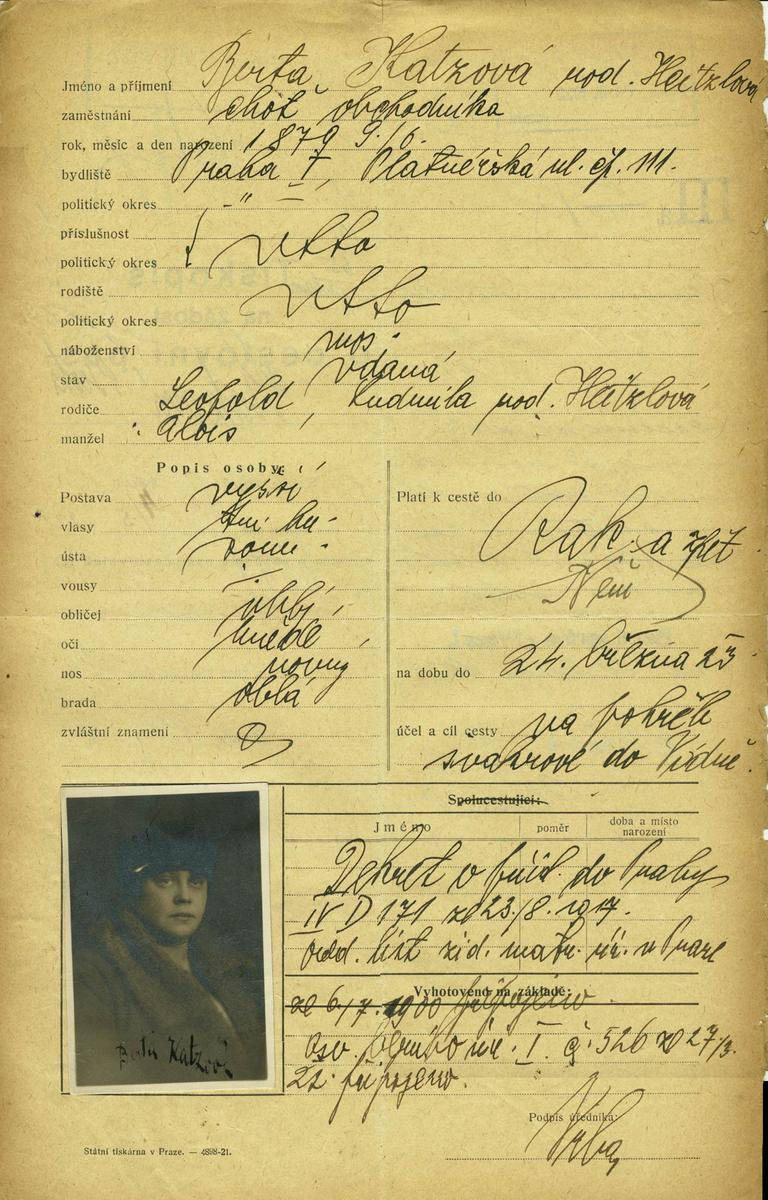 Jméno a příjmení Berta Katzová rod. Heitzlová
zaměstnání choť obchodníka
rok, měsíc a den narození 1879 9./6.
bydliště Praha I, Platnéřská ul. čp. 111.
politický okres -"-
příslušnost
politický okres detto
rodiště detto
politický okres
náboženství mos.
stav vdaná
rodiče Leopold, Ludmila rod. Heitzlová
manžel : Alois
Popis osoby:
Postava vyšší
vlasy tm. hn.
ústa rovn.
vousy
obličej obl.
oči hnědé
nos rovný
brada oblá
zvláštní znamení
Platí k cestě do Rak. a zpět
Něm
na dobu do 24. března 23
účel a cíl cesty na pohřeb
švakrové do Vídně.
Spolucestující:
Jméno poměr doba a místo narození
Dekret o přísl. do Prahy
IV D 171 ze 23./8. 1917.
odd. list žid. matr. úř. v Praze
Vyhotoveno na základě:
ze 6./7. 1900 připojeno
osv. I. č. 526 ze 27/3.
22. připojeno.
Berta Katzová
Podpis úředníka:
Vrba
Státní tiskárna v Praze. — 4898-21.